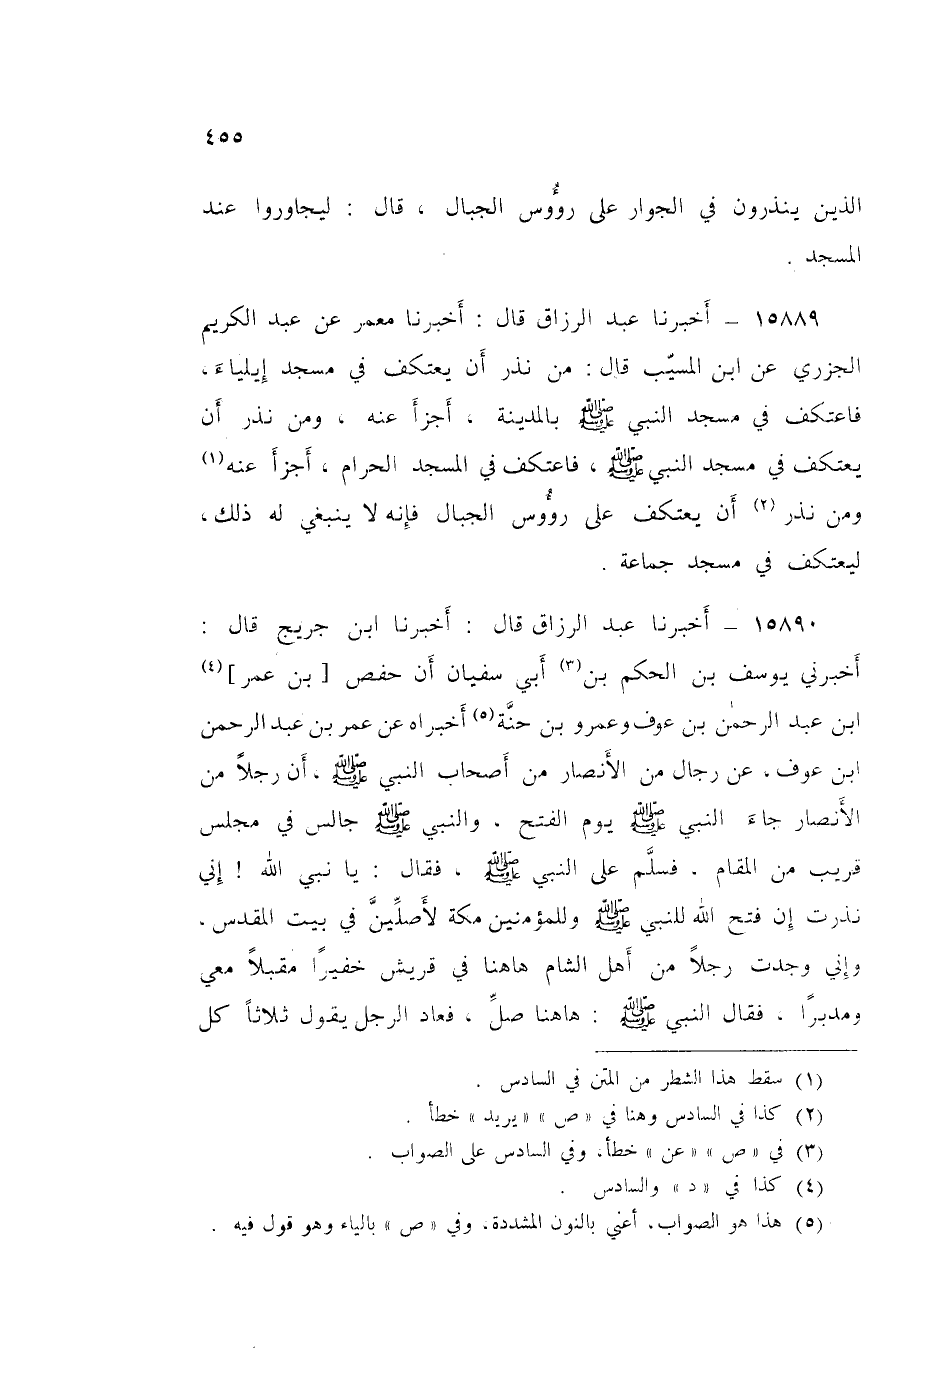 ٤٥٥
الذين ينذرون في الجوار على رؤُوس الجبال ، قال : ليجاوروا عند
المسجد .
١٥٨٨٩ – أَخبرنا عبد الرزاق قال : أَخبرنا معمر عن عبد الكريم
الجزري عن ابن المسيّب قال : من نذر أَن يعتكف في مسجد إِيلياءَ ،
فاعتكف في مسجد النبي ﷺ بالمدينة ، أَجزأَ عنه ، ومن نذر أَن
يعتكف في مسجد النبي ﷺ ، فاعتكف في المسجد الحرام ، أَجزأَ عنه (١)
ومن نذر (٢) أَن يعتكف على رؤُوس الجبال فإِنه لا ينبغي له ذلك ،
ليعتكف في مسجد جماعة .
١٥٨٩٠ – أَخبرنا عبد الرزاق قال : أَخبرنا ابن جريج قال :
أَخبرني يوسف بن الحكم بن (٣) أَبي سفيان أَن حفص [ بن عمر ] (٤)
ابن عبد الرحمٰن بن عوف وعمرو بن حنَّة (٥) أَخبراه عن عمر بن عبد الرحمن
ابن عوف ، عن رجال من الأَنصار من أَصحاب النبي ﷺ ، أَن رجلاً من
الأَنصار جاءَ النبي ﷺ يوم الفتح ، والنبي ﷺ جالس في مجلس
قريب من المقام ، فسلَّم على النبي ﷺ ، فقال : يا نبي الله ! إِني
نذرت إِن فتح الله للنبي ﷺ وللمؤمنين مكة لأُصلِّينَّ في بيت المقدس ،
وإِني وجدت رجلاً من أَهل الشام هاهنا في قريش خفيرًا مقبلاً معي
ومدبرًا ، فقال النبي ﷺ : هاهنا صلِّ ، فعاد الرجل يقول ثلاثاً كل
(١) سقط هذا الشطر من المتن في السادس .
(٢) كذا في السادس وهنا في « ص » « يريد » خطأ .
(٣) في « ص » « عن » خطأ، وفي السادس على الصواب .
(٤) كذا في « د » والسادس .
(٥) هذا هو الصواب، أعني بالنون المشددة، وفي « ص » بالياء وهو قول فيه .